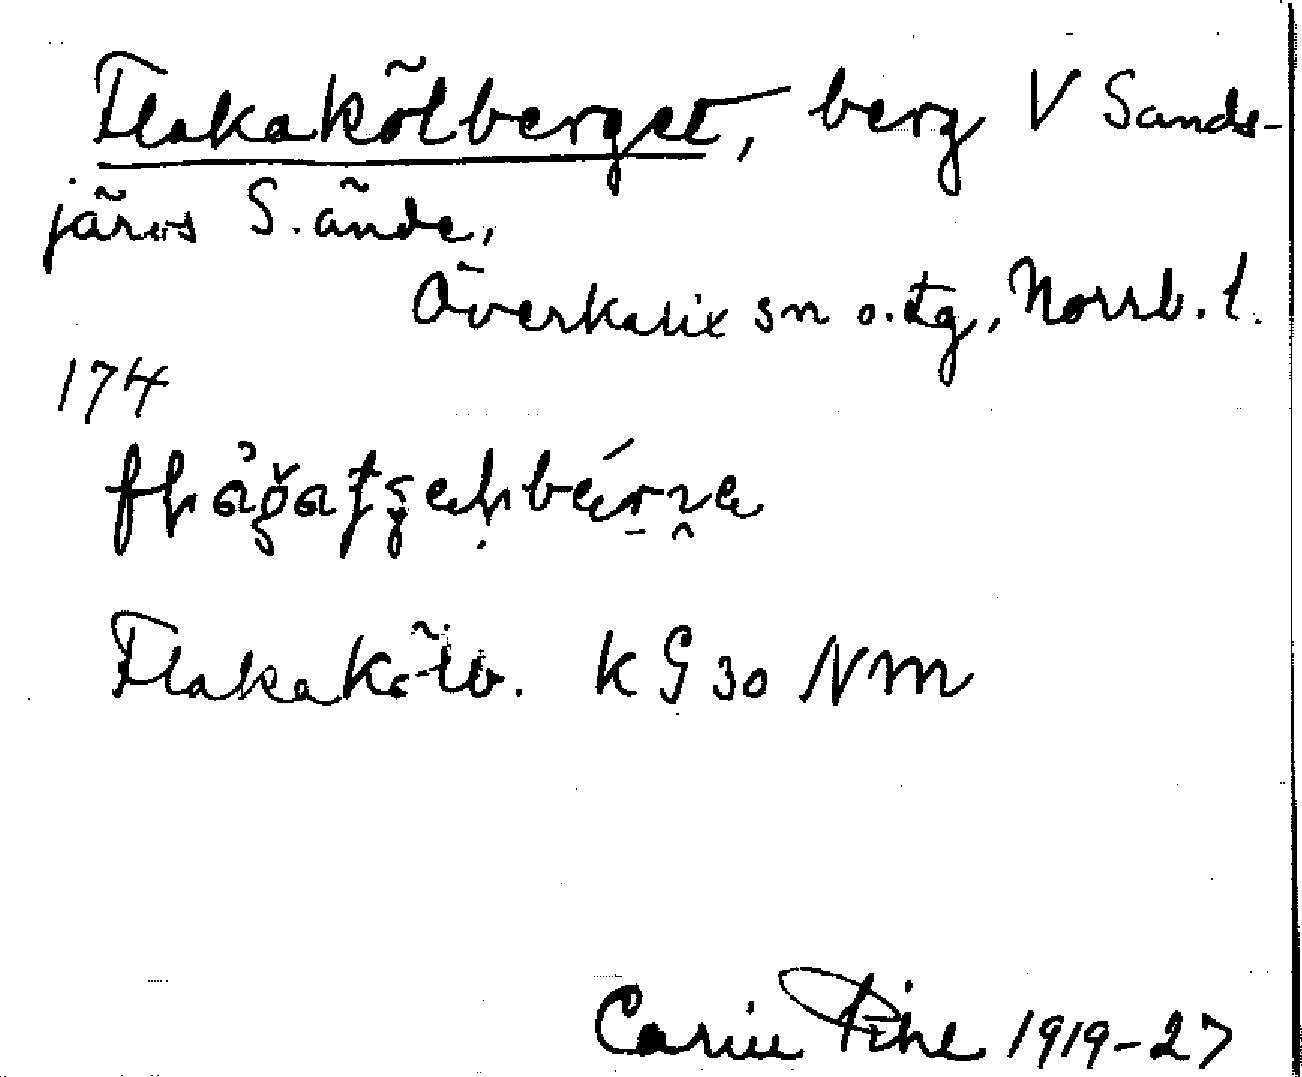 Flakakölberget, berg V Sands-
järvs S. ände,
Överkalix sn o. tg, Norrb. l.
174
Flakakölb. KG 30 NM
Carin Pihl 1919-27